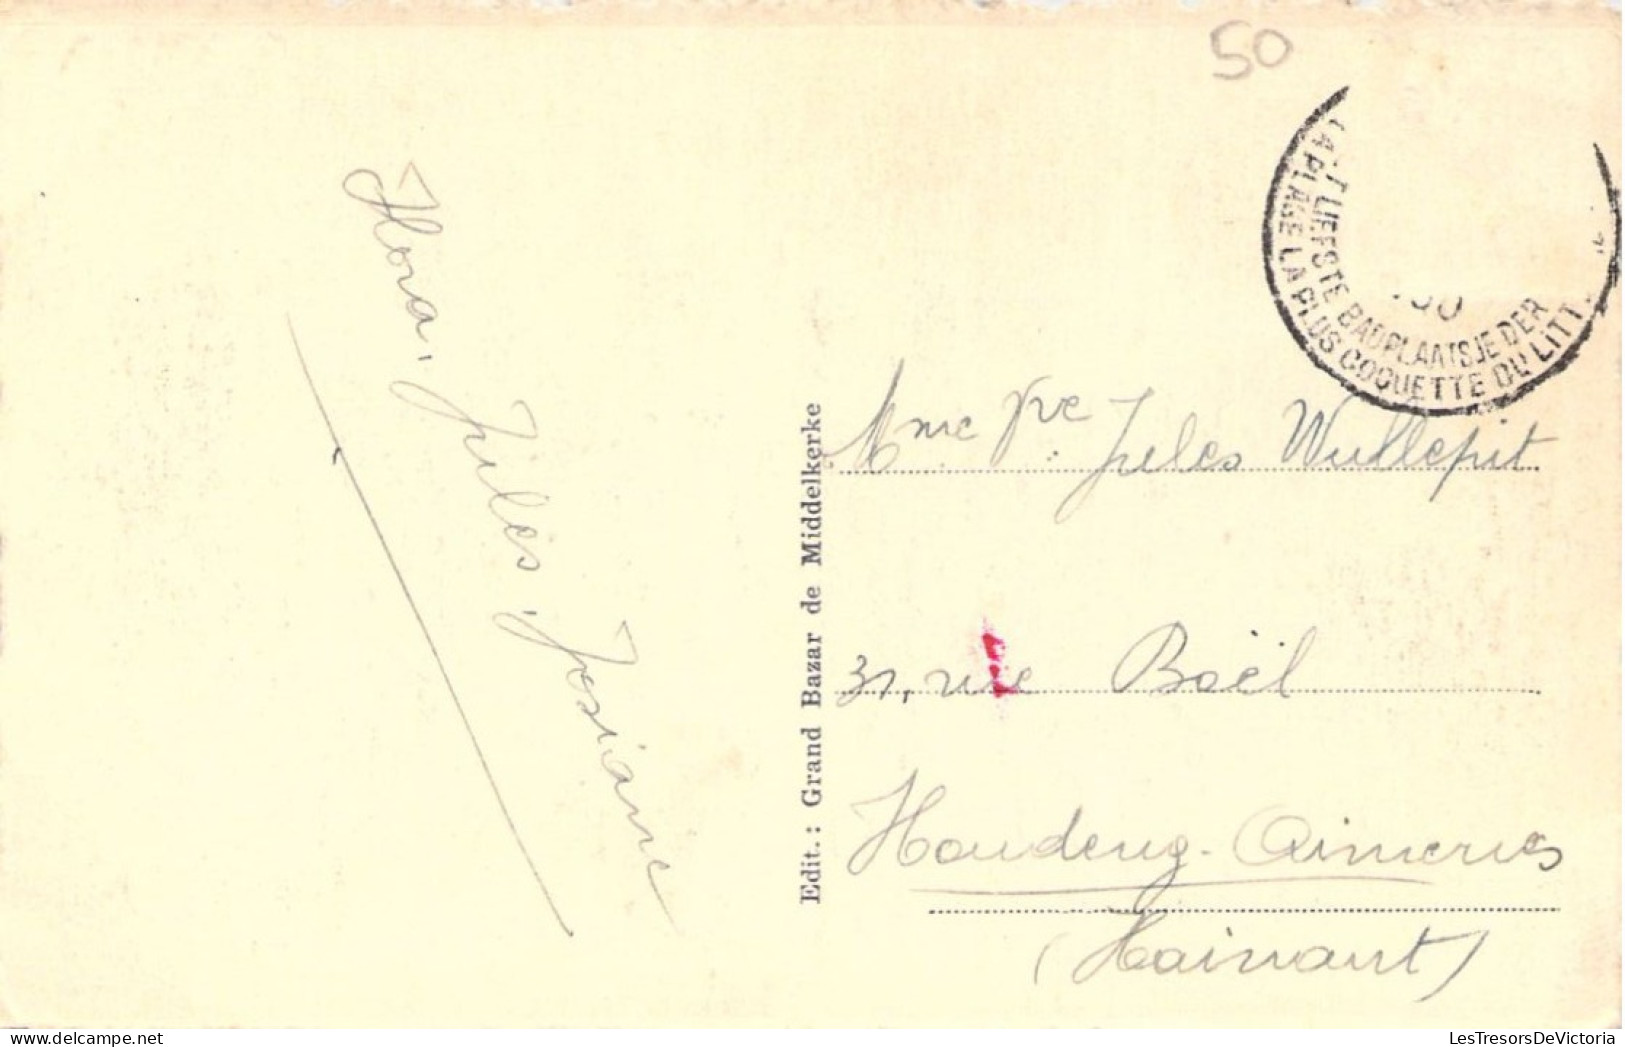 50
'T LIEFSTE BADPLAATSJE DER
LA PLAGE LA PLUS COQUETTE DU LITT
Flora, Jules, Josiane
Edit. : Grand Bazar de Middelkerke
Mme Vve Jules Wullepit
31, rue Boël
Houdeng-Aimeries
(Hainaut)
LesTresorsDeVictoria